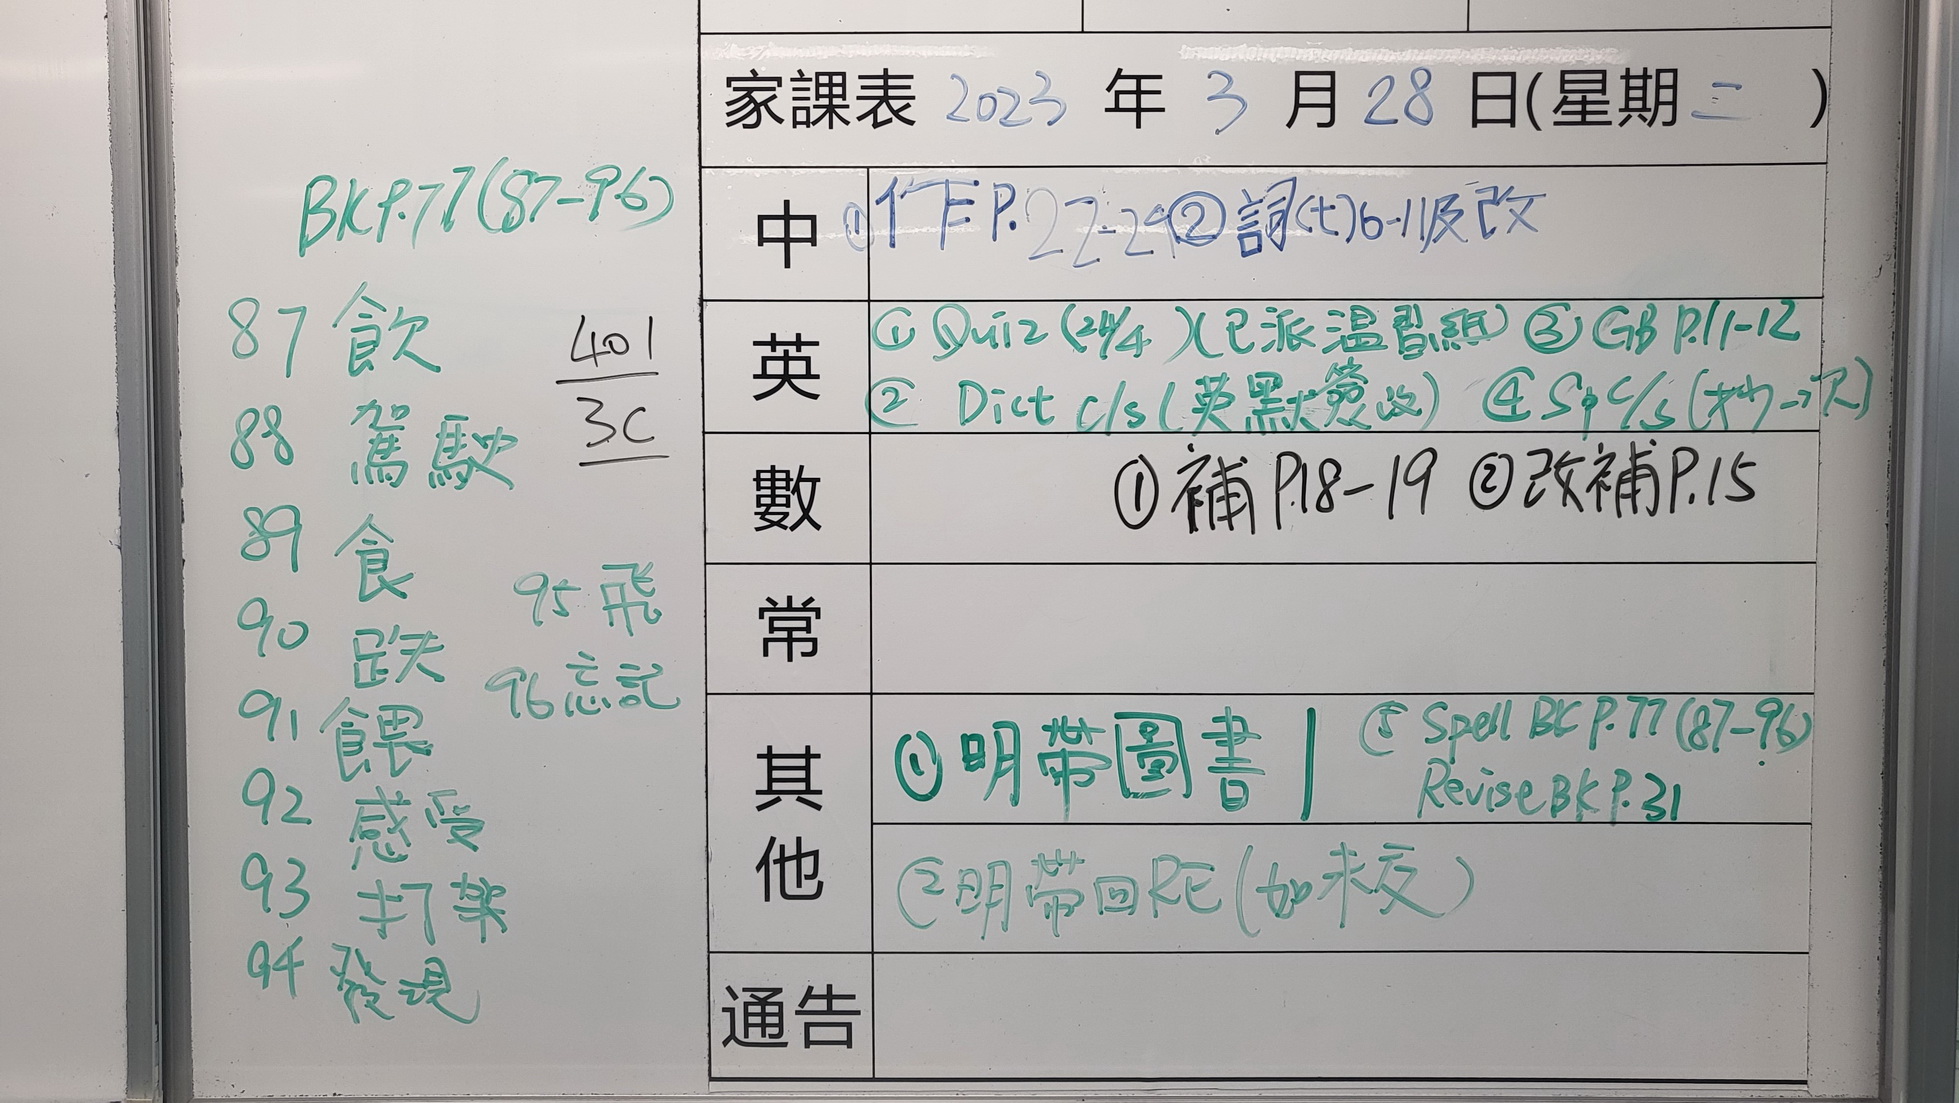 家課表 2023 年 3 月 28 日(星期二 )
中 ①作 P.22-24 ②詞(七)6-11及改
英 ① Quiz (24/4 )(已派溫習紙) ③ GB P.11-12
② Dict c/s (英默簽改) ④ Sp c/s (抄一次)
數 ①補P.18-19 ②改補P.15
常
其他 ①明帶圖書 | ⑤ Spell BK P.77 (87-96)
Revise BK P.31
②明帶回RE (如未交)
通告
BK P.77 (87-96)
87 飲
88 駕駛
89 食
90 跌
91 餵
92 感受
93 打架
94 發現
95 飛
96 忘記
401
3C